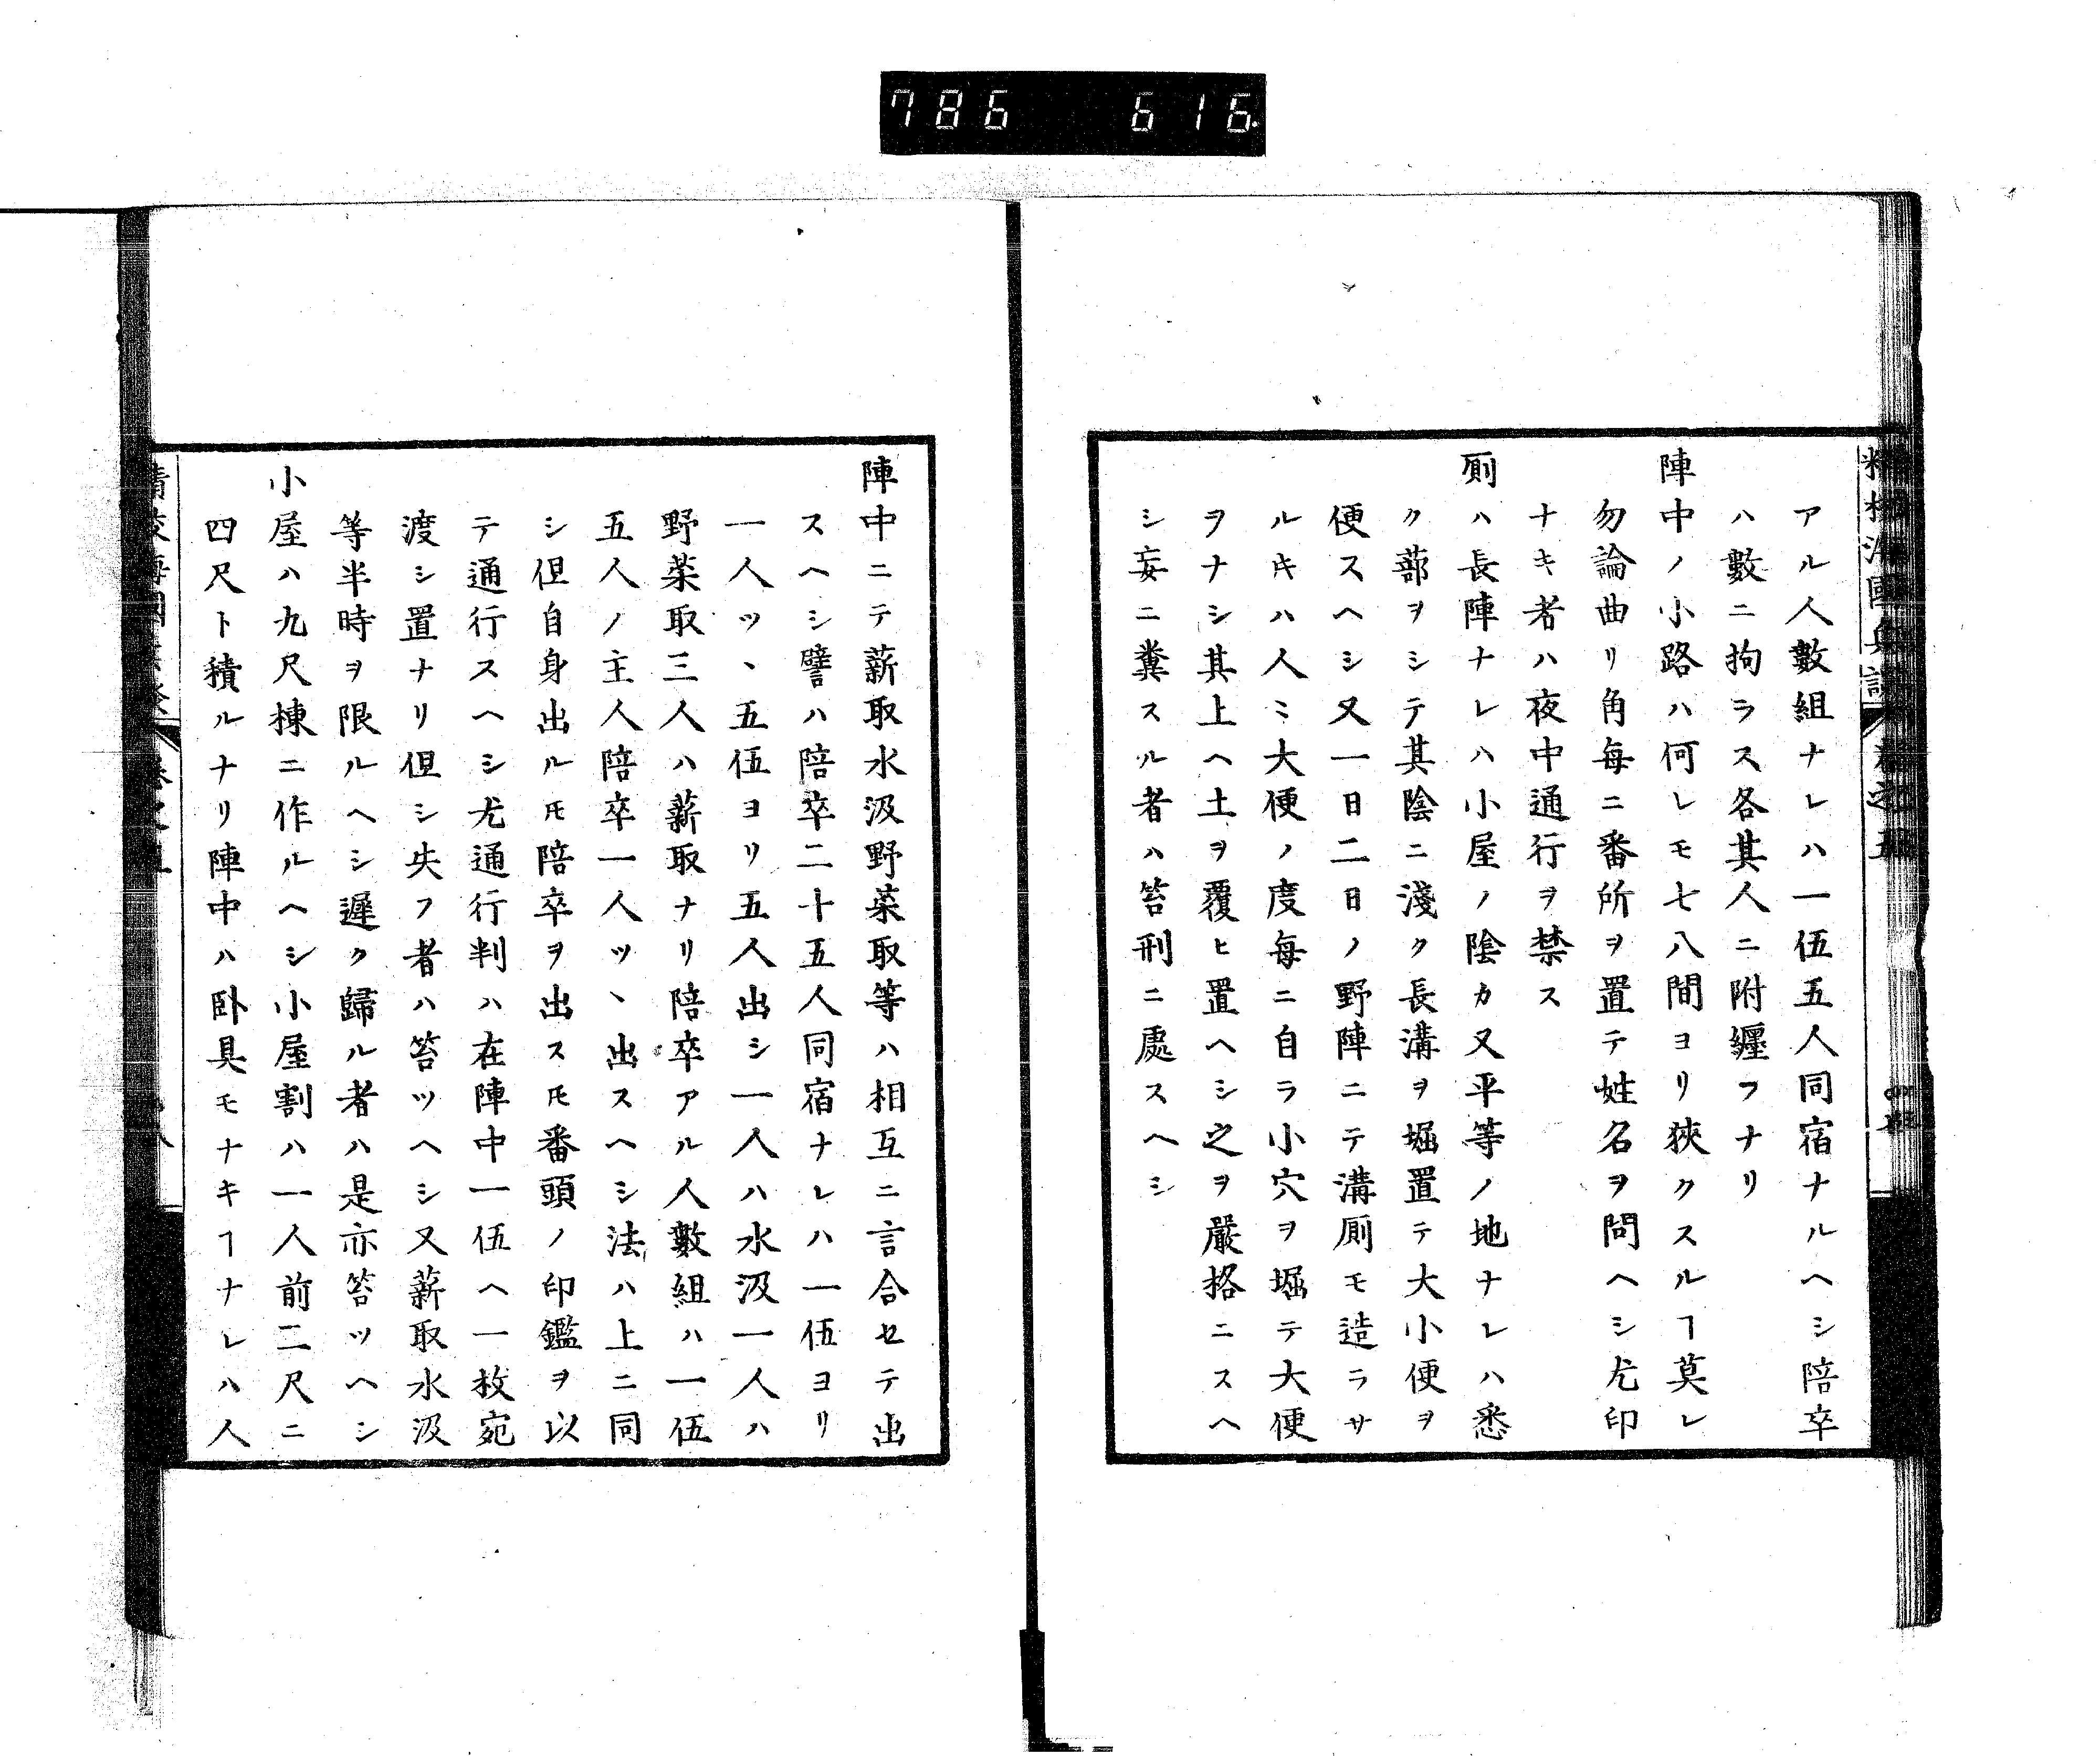 786 616
アル人數組ナレハ一伍五人同宿ナルヘシ陪卒
ハ數ニ拘ラス各其人ニ附纒フナリ
陣中ノ小路ハ何レモ七八間ヨリ狹クスルヿ莫レ
勿論曲リ角每ニ番所ヲ置テ姓名ヲ問ヘシ尤印
ナキ者ハ夜中通行ヲ禁ス
厠ハ長陣ナレハ小屋ノ陰カ又平等ノ地ナレハ悉
ク蔀ヲシテ其陰ニ淺ク長溝ヲ堀置テ大小便ヲ
便スヘシ又一日二日ノ野陣ニテ溝厠モ造ラサ
ルキハ人ミ大便ノ度每ニ自ラ小穴ヲ堀テ大便
ヲナシ其上ヘ土ヲ覆ヒ置ヘシ之ヲ嚴格ニスヘ
シ妄ニ糞スル者ハ笞刑ニ處スヘシ
陣中ニテ薪取水汲野菜取等ハ相互ニ言合セテ出
スヘシ譬ハ陪卒二十五人同宿ナレハ一伍ヨリ
一人ツヽ五伍ヨリ五人出シ一人ハ水汲一人ハ
野菜取三人ハ薪取ナリ陪卒アル人數組ハ一伍
五人ノ主人陪卒一人ツヽ出スヘシ法ハ上ニ同
シ但自身出ルモ陪卒ヲ出スモ番頭ノ印鑑ヲ以
テ通行スヘシ尤通行判ハ在陣中一伍ヘ一枚宛
渡シ置ナリ但シ失フ者ハ笞ツヘシ又薪取水汲
等半時ヲ限ルヘシ遲ク歸ル者ハ是亦笞ツヘシ
小屋ハ九尺棟ニ作ルヘシ小屋割ハ一人前二尺ニ
四尺ト積ルナリ陣中ハ臥具モナキヿナレハ人